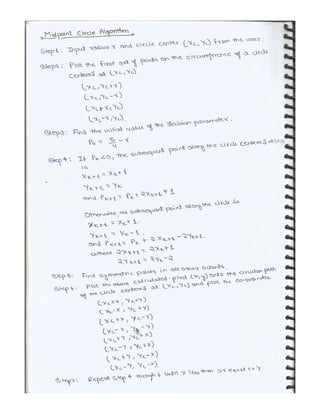 Midpoint Circle Algorithm
Step1: Input radius r and circle center (xc, yc) from the user.
Step2: Plot the first set of points on the circumference of a circle
centered at (xc, yc)
(xc, yc+r)
(xc, yc-r)
(xc+r, yc)
(xc-r, yc).
Step3: Find the initial value of the decision parameter.
P0 = 5/4 - r
Step4: If Pk<0, the subsequent point along the circle centered at
is
xk+1 = xk+1
yk+1 = yk
and Pk+1 = Pk + 2xk+1 + 1
Otherwise the subsequent point along the circle is
xk+1 = xk+1.
yk+1 = yk-1.
and Pk+1 = Pk + 2xk+1 - 2yk+1.
where 2xk+1 = 2xk+1
2yk+1 = 2yk-2
Step5: Find symmetric points in all other octants.
Step6: Plot the above calculated pixel (x, y) onto the circular path
of the circle centered at (xc, yc) and plot the co-ordinates.
(xc+x, yc+y)
(xc-x, yc+y)
(xc+x, yc-y)
(xc-x, yc-y)
(xc+y, yc+x)
(xc-y, yc+x)
(xc+y, yc-x)
(xc-y, yc-x)
Step7: Repeat step 4 through 6 until x less than or equal to y.